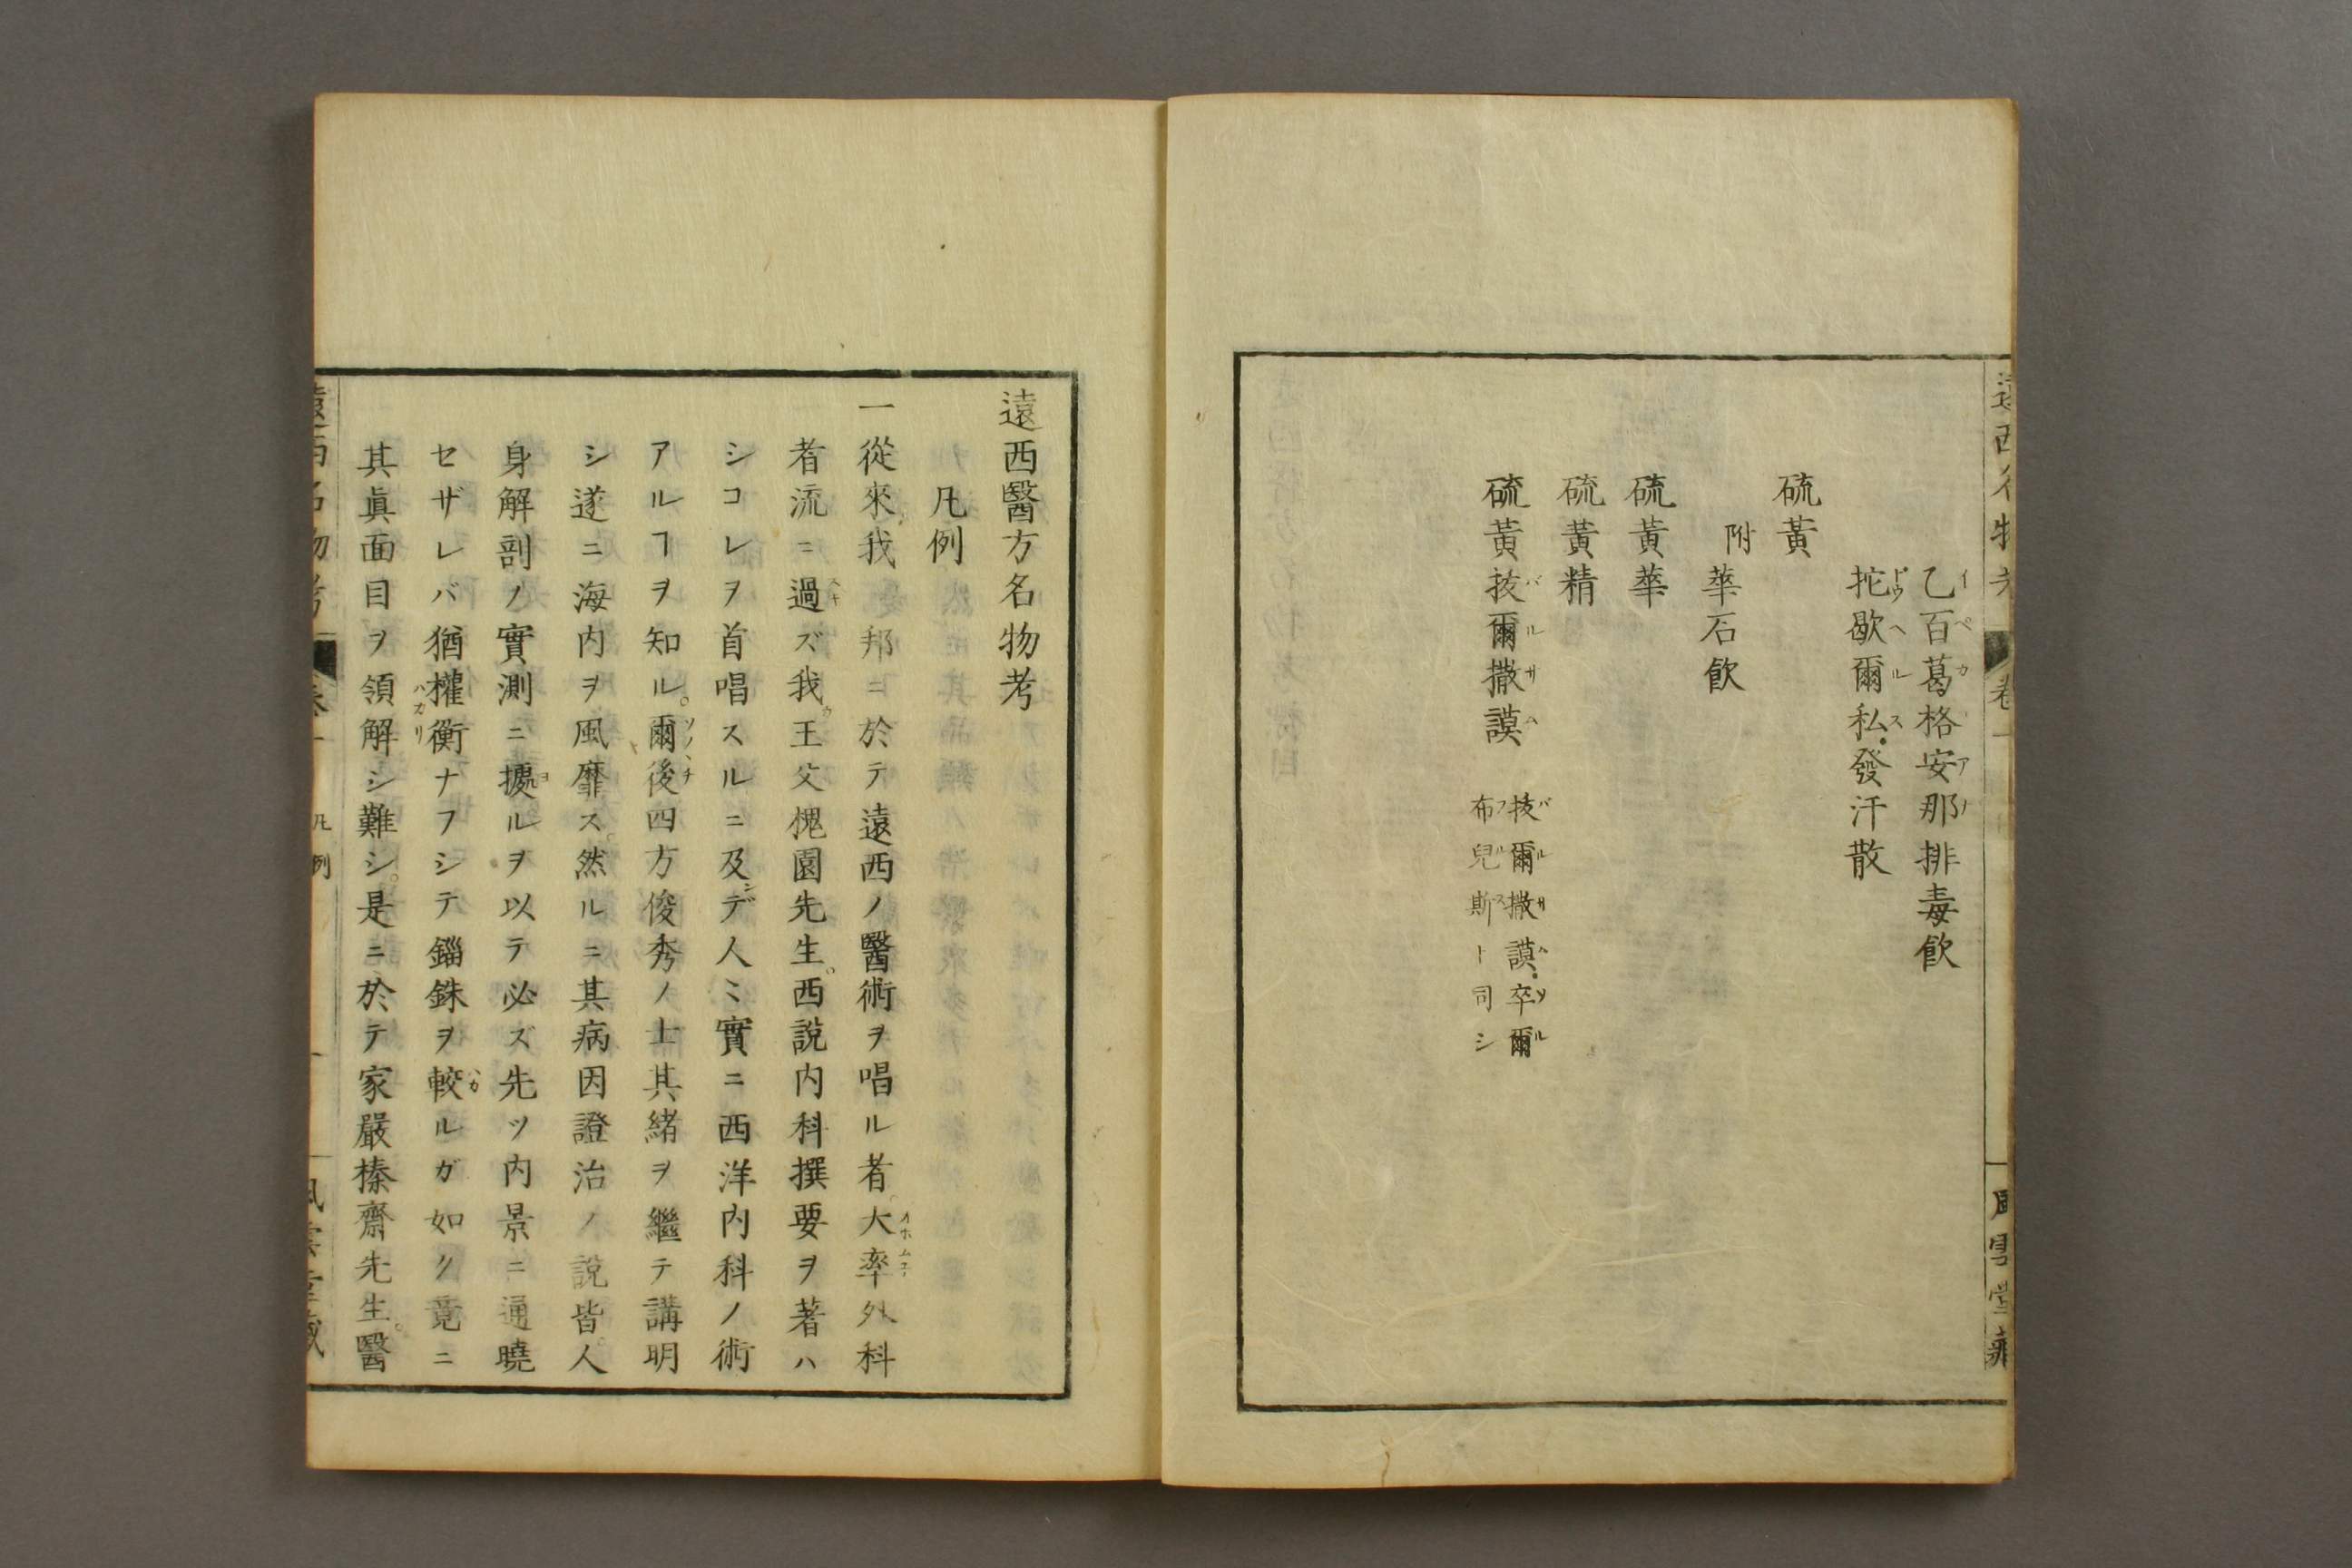 乙百葛格安那排毒飲
扡歇爾私・發汗散
硫黃
附
華石飲
硫黃華
硫黃精
硫黃拔爾撒謨
拔爾撒謨・卒爾
布兒斯ト同シ
遠西醫方名物考
凡例
一從來我邦ニ於テ遠西ノ醫術ヲ唱ル者大率外科
者流ニ過ズ我王父槐園先生。西說内科撰要ヲ著ハ
シコレヲ首唱スルニ及デ人〻實ニ西洋内科ノ術
アルヿヲ知ル。爾後四方俊秀ノ士其緖ヲ繼テ講明
シ遂ニ海内ヲ風靡ス。然ルニ其病因證治ノ說皆。人
身解剖ノ實測ニ據ルヲ以テ必ズ先ツ内景ニ通曉
セザレバ猶權衡ナフシテ錙銖ヲ較ルガ如ク竟ニ
其眞面目ヲ領解シ難シ。是ニ於テ家嚴榛齋先生。醫
凡例